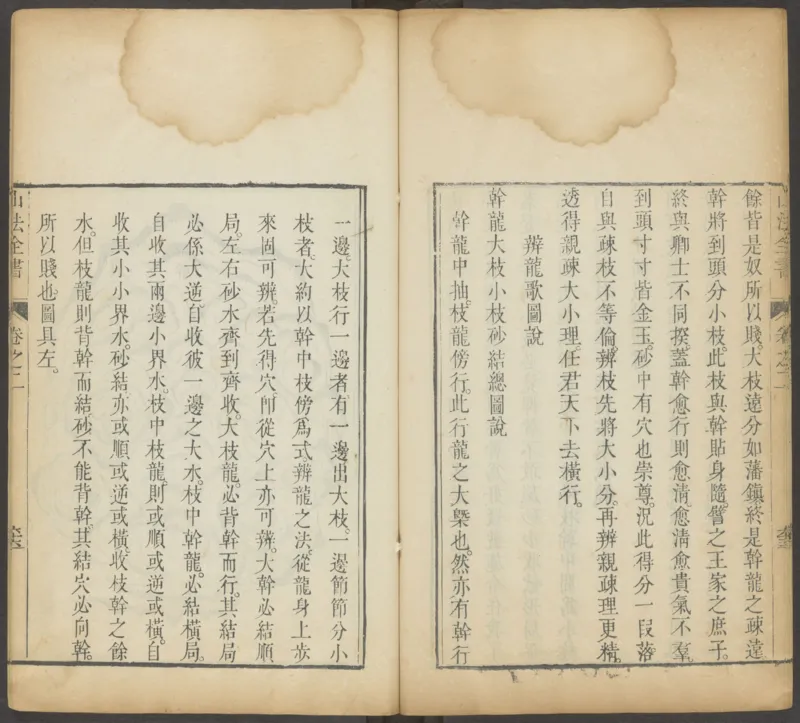 餘皆是奴所以賤。大枝遠分如藩鎮終是幹龍之疎遠。
幹將到頭分小枝。此枝與幹貼身隨。譬之王家之庶子。
終與卿士不同揆。蓋幹愈行則愈淸。愈淸愈貴氣不羣。
到頭寸寸皆金玉。砂中有穴也崇尊。況此得分一叚落
自與疎枝不等倫。辨枝先將大小分。再辨親疎理更精。
透得親疎大小理。任君天下去橫行。
辨龍歌圖說
幹龍大枝小枝砂結總圖說
幹龍中抽。枝龍傍行。此行龍之大槩也。然亦有幹行
一邊。大枝行一邊者。有一邊出大枝。一邊節節分小
枝者。大約以幹中枝傍爲式。辨龍之法。從龍身上步
來固可辨。若先得穴。卽從穴上亦可辨。大幹必結順
局。左右砂水齊到齊收。大枝龍。必背幹而行。其結局
必係大逆。自收彼一邊之大水。枝中幹龍。必結橫局。
自收其兩邊小界水。枝中枝龍。則或順或逆或橫。自
收其小小界水。砂結亦或順或逆或橫。收枝幹之餘
水。但枝龍則背幹而結。砂不能背幹。其結穴必向幹。
所以賤也。圖具左。
山法全書
卷之二